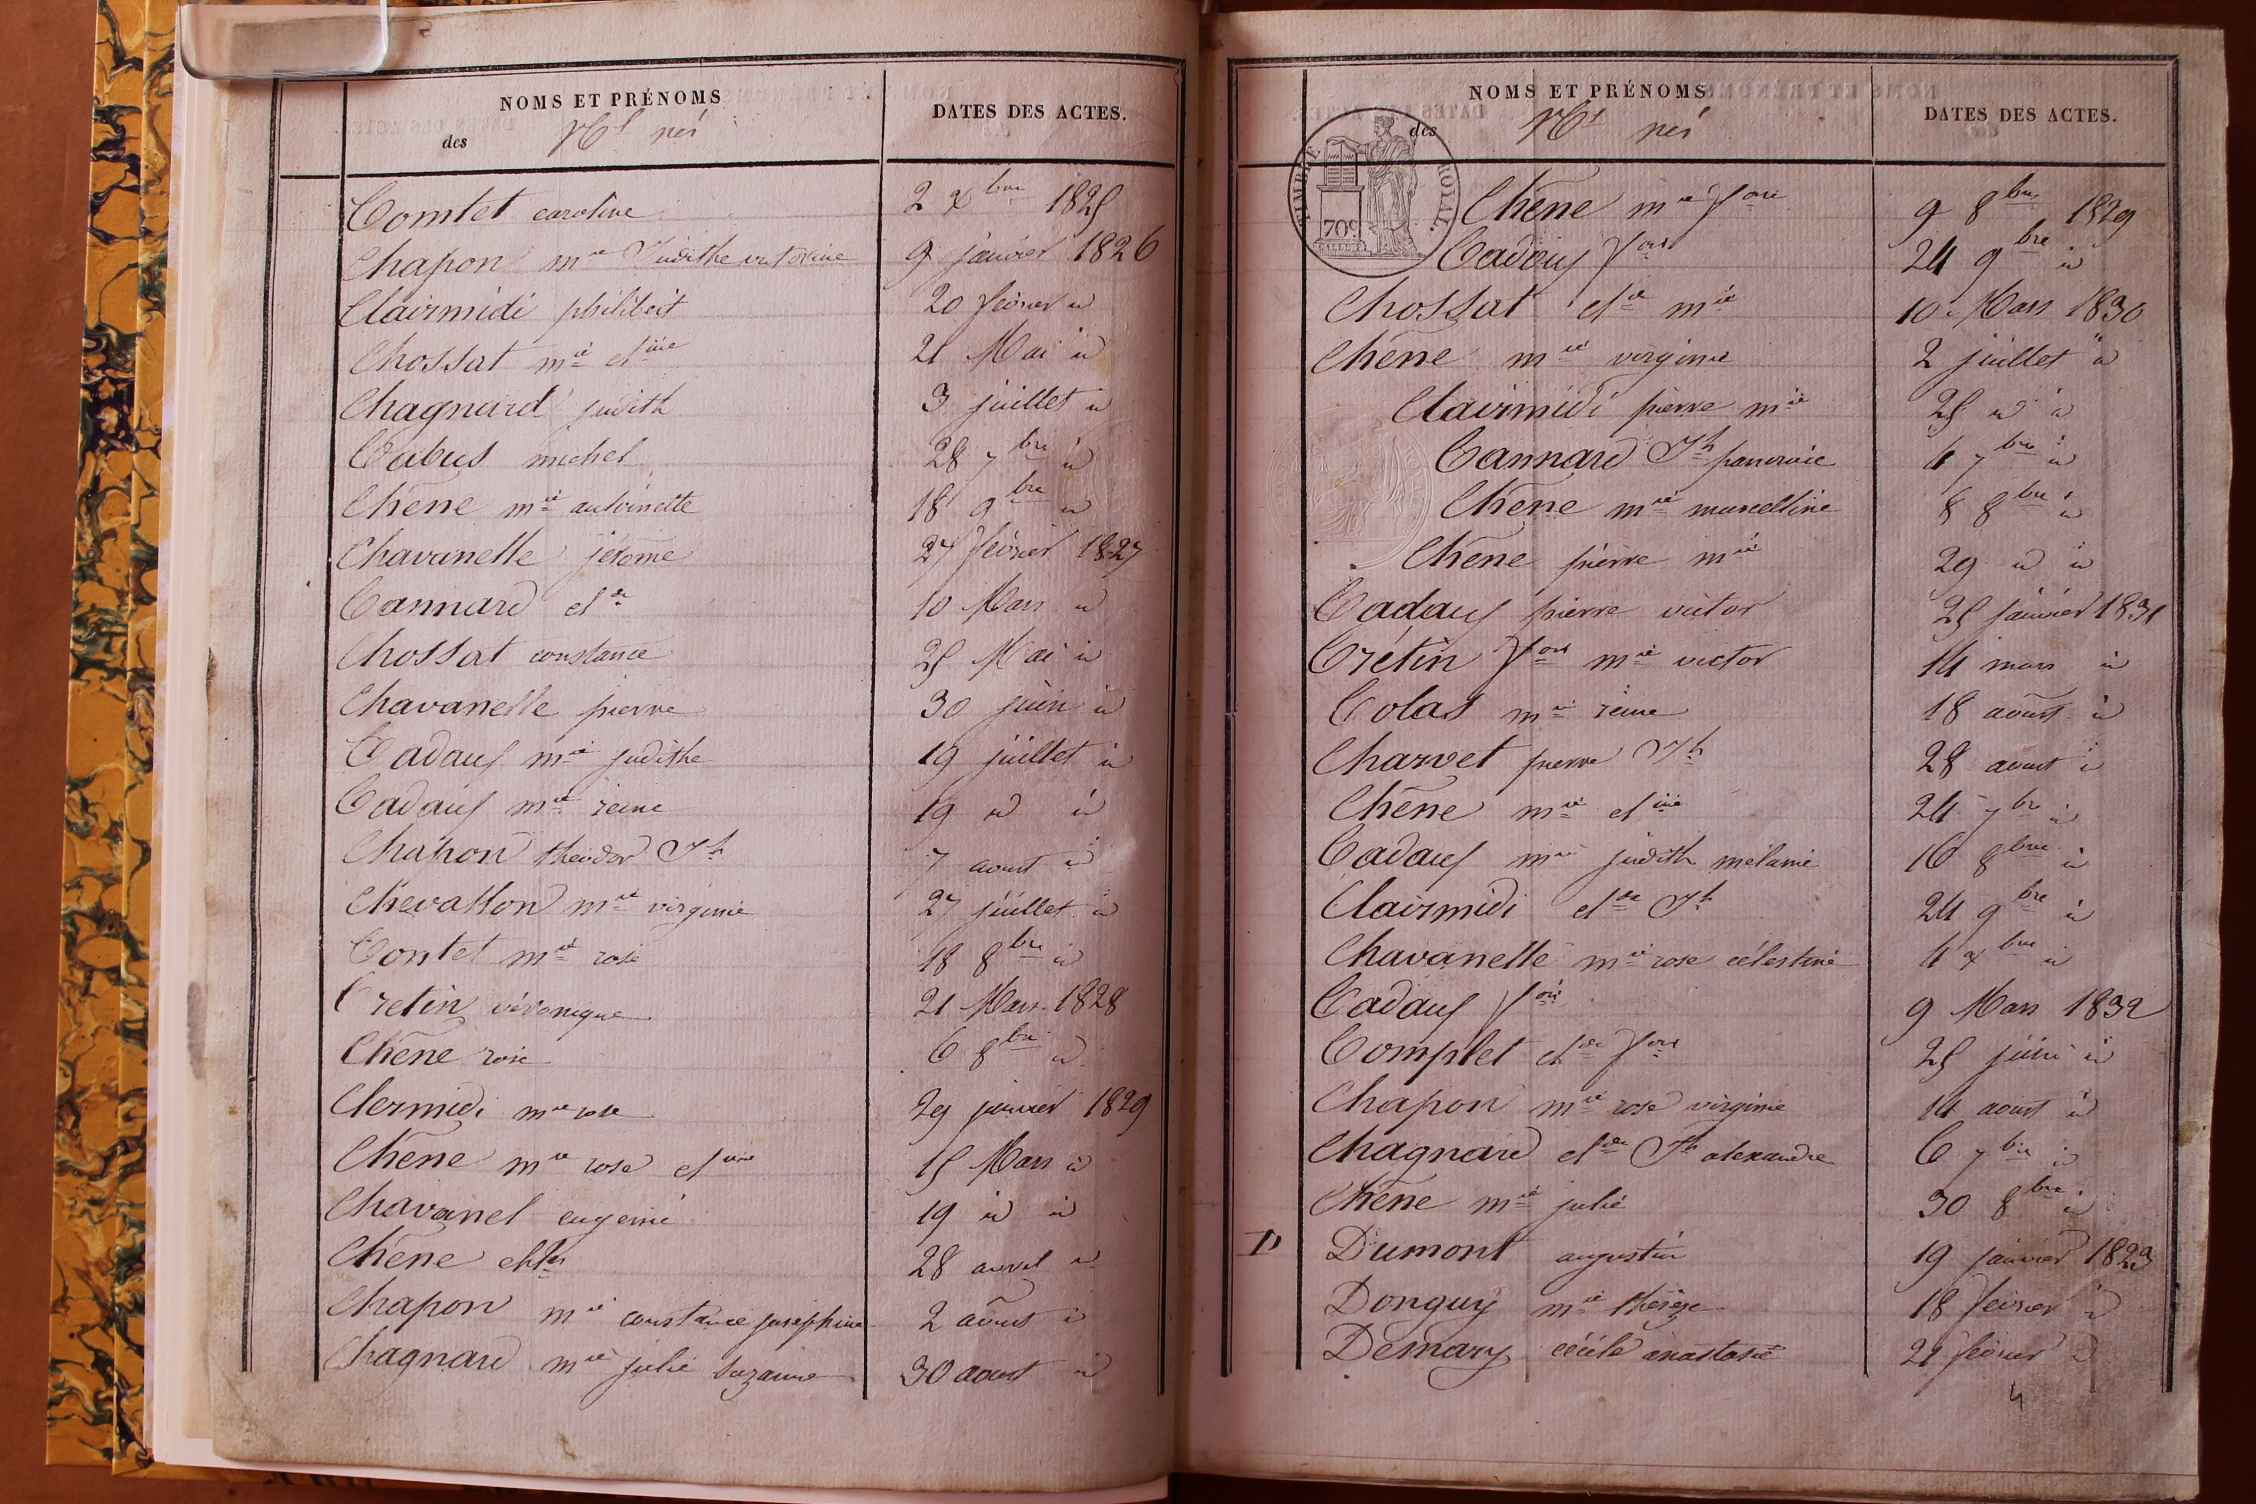 NOMS ET PRÉNOMS
des nés
DATES DES ACTES.
Comtet caroline 2 Xbre 1825
Chapon mie Judithe victorine 9 janvier 1826
Clairmidi philibert 20 février id
Chossat mie cline 21 Mai id
Chagnard judith 3 juillet id
Cabus michel 28 7bre id
Chêne mie antoinette 18 9bre id
Chavanelle jérome 27 février 1827
Cannard clde 10 Mars id
Chossat constance 25 Mai id
Chavanelle pierre 30 juin id
Cadauf mie judithe 19 juillet id
Cadauf mie reine 19 id id
Chapon théodor Jh 7 aoust id
Chevallon mie virginie 27 juillet id
Contet mie rose 18 8bre id
Cretin véronique 21 Mars 1828
Chêne rose 6 8bre id
Clermidi mie rose 29 janvier 1829
Chêne mie rose cline 15 Mars id
Chavanel eugenie 19 id id
Chêne chles 28 avril id
Chapon mie constance joséphine 2 aoust id
Chagnard mie julie suzanne 30 aoust id
NOMS ET PRÉNOMS
des nés
DATES DES ACTES.
TIMBRE ROYAL
70c
Chêne mie foise 9 8bre 1829
Cadouf fois 24 9bre id
Chossat clde mie 10 Mars 1830
Chêne mie virginie 2 juillet id
Clairmidi pierre mie 25 id id
Cannard Jh 4 7bre id
Chêne mie marcelline 8 8bre id
Chêne pierre mie 29 id id
Cadauf pierre victor 25 janvier 1831
Crétin fois mie victor 14 mars id
Colas mie reine 18 aoust id
Charvet pierre Jh 28 aoust id
Chêne mie cline 24 7bre id
Cadauf mie judith mélanie 16 8bre id
Clairmidi clde Jh 24 9bre id
Chavanelle mie rose célestine 4 Xbre id
Cadauf fois 9 Mars 1832
Complet clde fois 25 juin id
Chapon mie rose virginie 14 aoust id
Chagnard clde Jh alexandre 6 7bre id
Chêne mie julie 30 8bre id
D Dumont augustin 19 janvier 1823
Donguy mie thérèze 18 février id
Demary cécile anastasie 21 février id
4